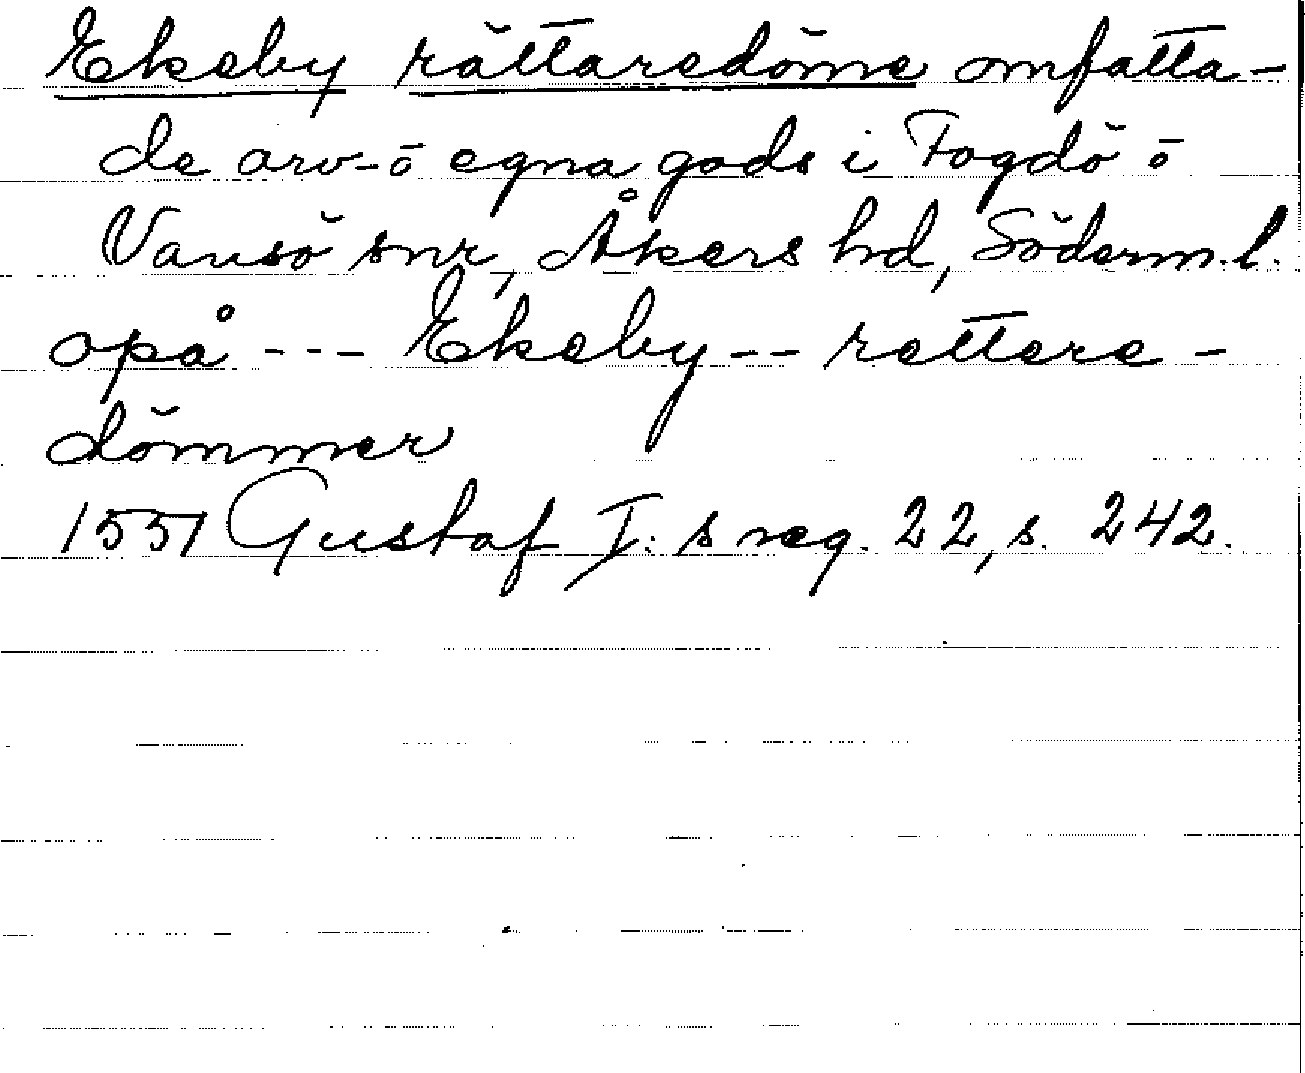 Ekeby rättaredöme omfatta-
de arv- o egna gods i Fogdö o
Vansö snr, Åkers hd, Söderm.l.
opå --- Ekeby -- rettere-
dömmer
1551 Gustaf I:s reg. 22, s. 242.